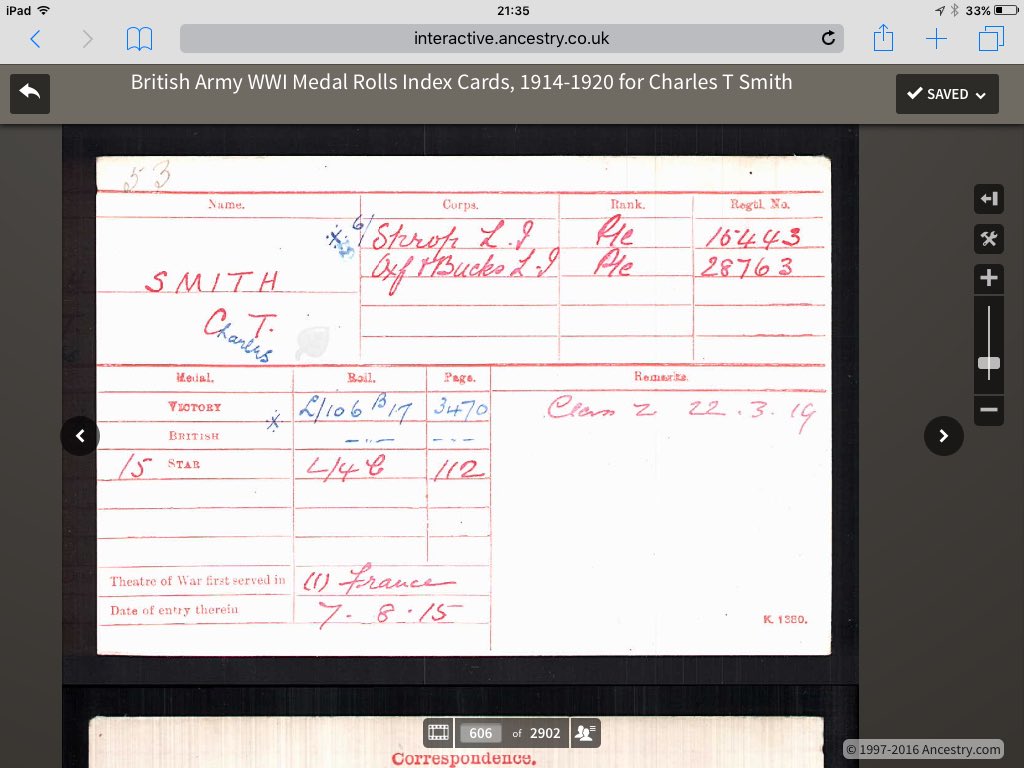 iPad 21:35 33%
interactive.ancestry.co.uk
British Army WWI Medal Rolls Index Cards, 1914-1920 for Charles T Smith
SAVED
53
Name. Corps. Rank. Regtl. No.
6/ Shrop L.I Pte 15443
Oxf & Bucks L.I Pte 28763
SMITH
C T.
Charles
Medal. Roll. Page. Remarks.
VICTORY L/106 B17 3470 Class Z 22.3.19
BRITISH -"- - - -
15 STAR L/4 C 112
Theatre of War first served in (1) France
Date of entry therein 7-8-15
K. 1380.
606 of 2902
Correspondence.
© 1997-2016 Ancestry.com